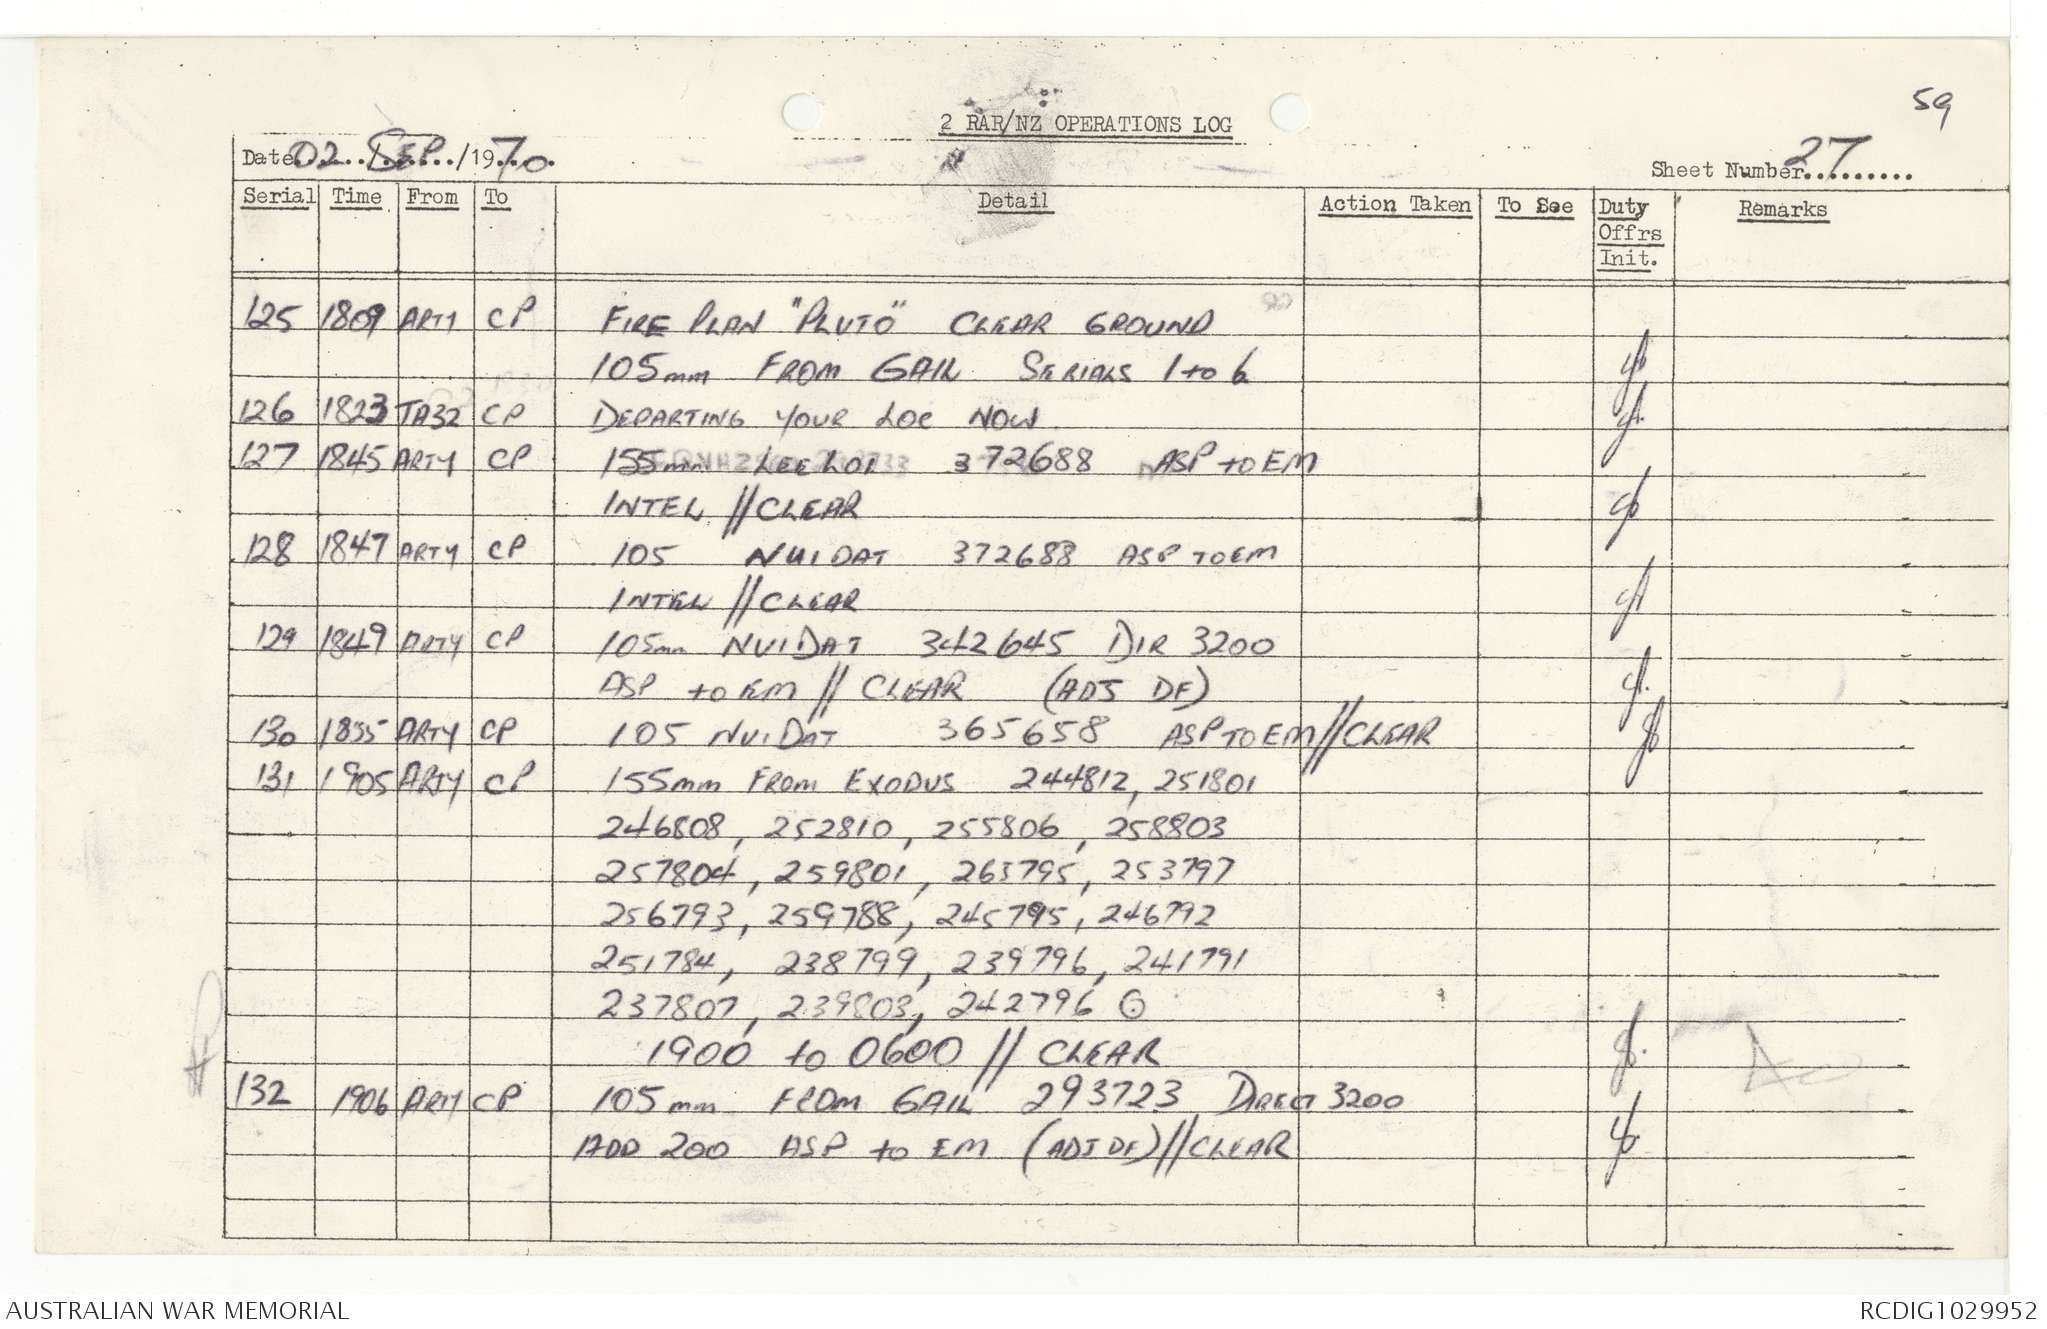 59
2 RAR/NZ OPERATIONS LOG
Date 02 SEP /1970
Sheet Number 27
Serial Time From To Detail Action Taken To See Duty Offrs Init. Remarks
125 1809 ARTY CP FIRE PLAN "PLUTO" CLEAR GROUND
105mm FROM GAIL SERIALS 1 to 6
126 1823 TA32 CP DEPARTING YOUR LOC NOW.
127 1845 ARTY CP 155mm LEE LOI 372688 ASP to EM
INTEL // CLEAR
128 1847 ARTY CP 105 NUI DAT 372688 ASP TO EM
INTEL // CLEAR
129 1849 ARTY CP 105mm NUI DAT 342645 DIR 3200
ASP to EM // CLEAR (ADJ DF)
130 1855 ARTY CP 105 NUI DAT 365658 ASP TO EM // CLEAR
131 1905 ARTY CP 155mm FROM EXODUS 244812, 251801
246808, 252810, 255806, 258803
257804, 259801, 263795, 253797
256793, 259788, 245795, 246792
251784, 238799, 239796, 241791
237807, 239803, 242796
1900 to 0600 // CLEAR
132 1906 ARTY CP 105mm FROM GAIL 293723 DIRECT 3200
ADD 200 ASP to EM (ADJ DF) // CLEAR
AUSTRALIAN WAR MEMORIAL
RCDIG1029952